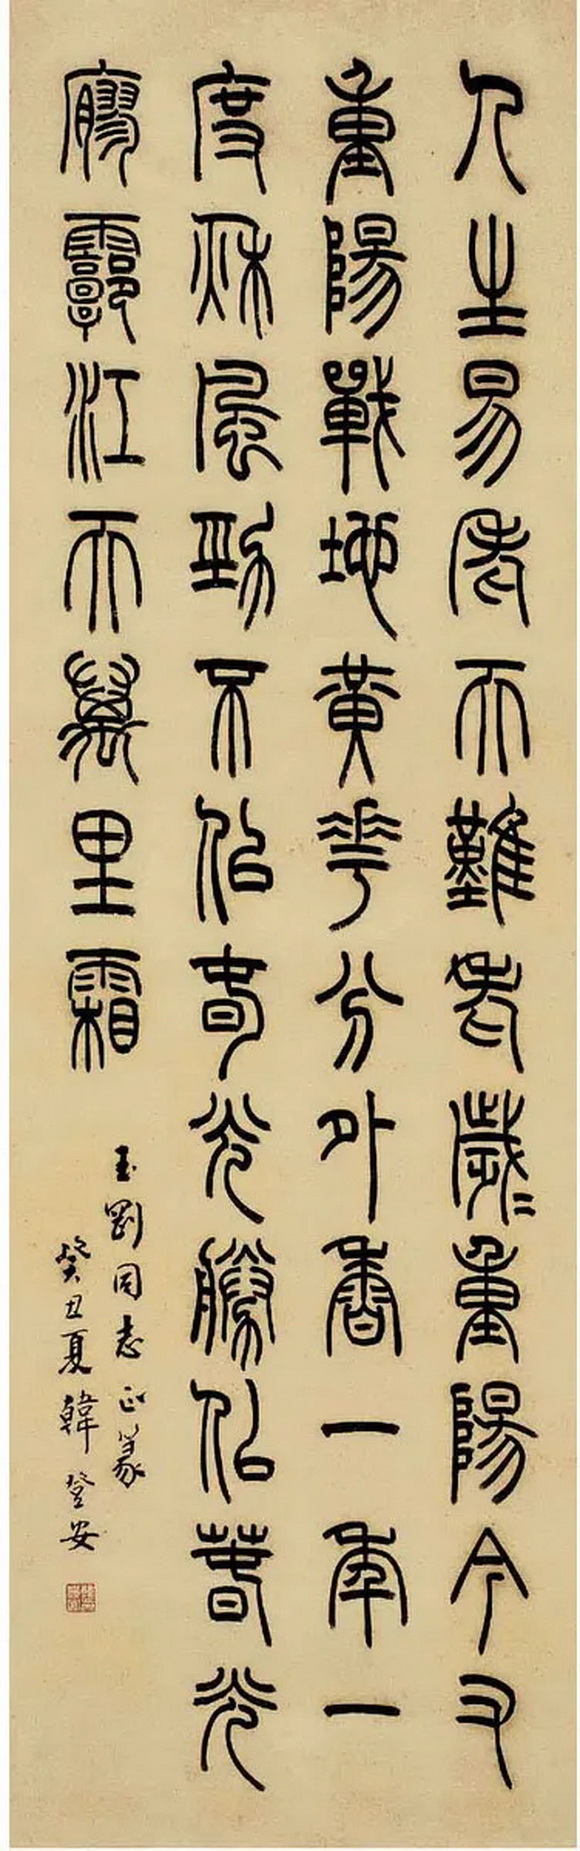 人生易老天難老歲〻重陽今又
重陽戰地黃花分外香一年一
度秋風勁不似春光勝似春光
寥廓江天萬里霜
玉剛同志正篆
癸丑夏韓登安